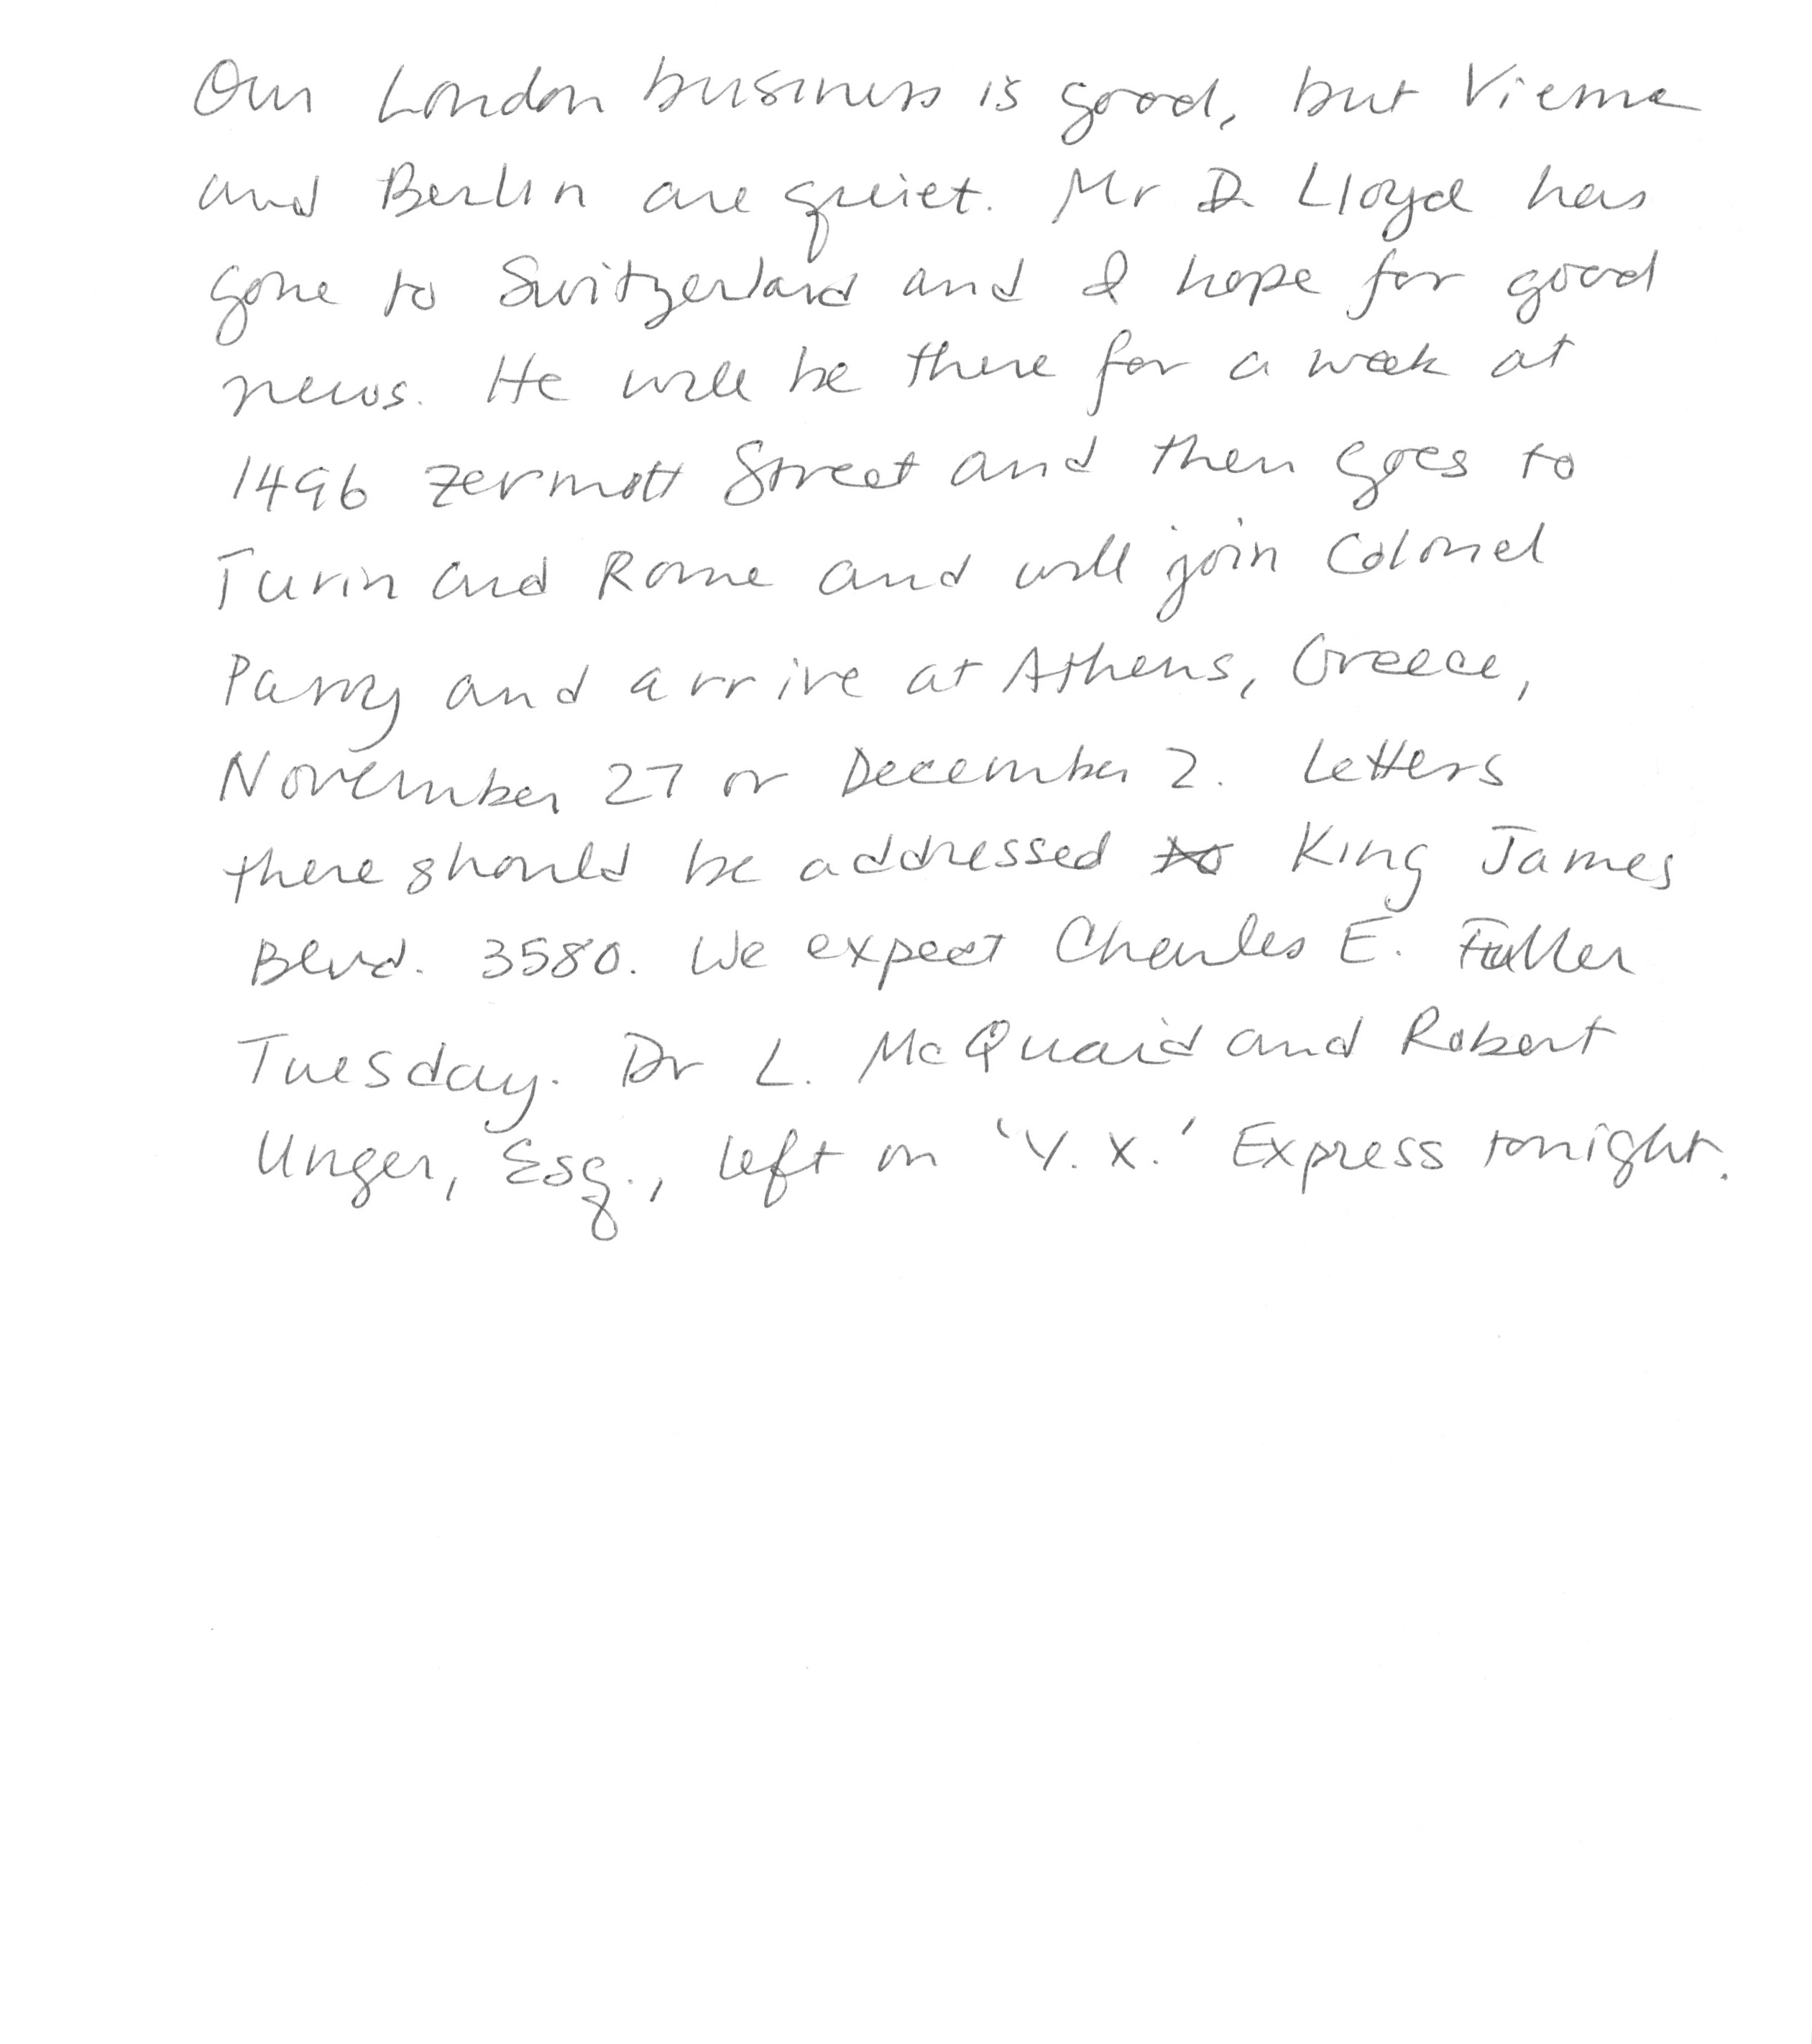 Our London business is good, but Vienna
and Berlin are quiet. Mr D. Lloyd has
gone to Switzerland and I hope for good
news. He will be there for a week at
1496 Zermott Street and then goes to
Turin and Rome and will join Colonel
Parry and arrive at Athens, Greece,
November 27 or December 2. Letters
there should be addressed to King James
Blvd. 3580. We expect Charles E. Fuller
Tuesday. Dr L. McQuaid and Robert
Unger, Esq., left on 'Y.X.' Express tonight.